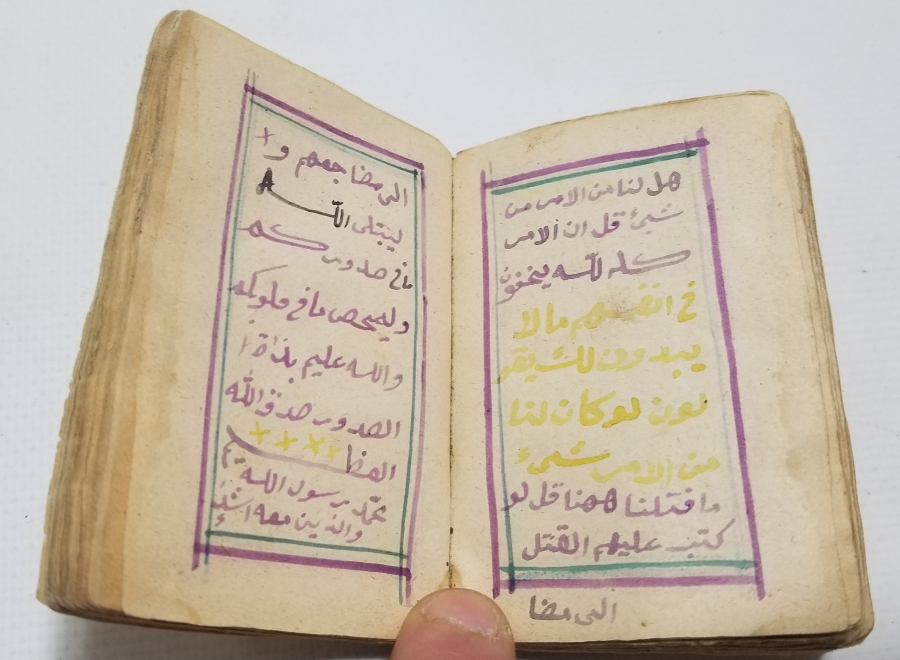 هل لنا من الامر من
شيئ قل ان الامر
كله لله يخفون
في انفسهم ما لا
يبدون لك يقو
لون لو كان لنا
من الامر شيئ
ما قتلنا ههنا قل لو
كتب عليهم القتل
الى مضا
الى مضاجعهم و
ليبتلى الله
ما في صدوركم
وليمحص ما في قلوبكم
والله عليم بذات ا
الصدور صدق الله
العظيم
محمد رسول الله
والذين معه اشد